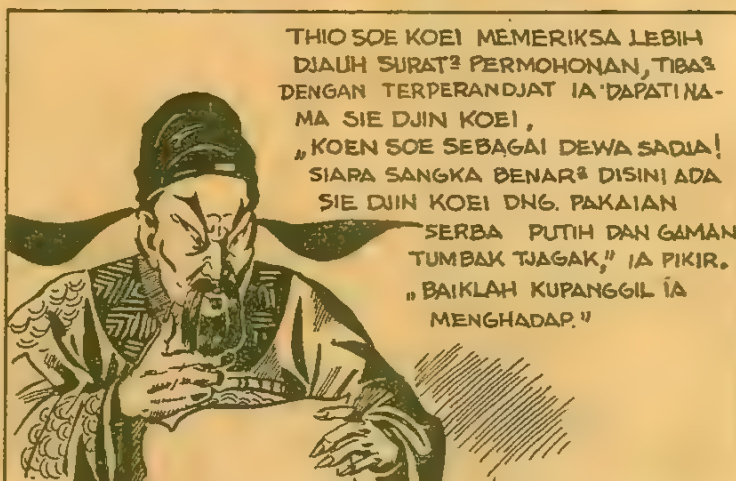 THIO SOE KOEI MEMERIKSA LEBIH
DJAUH SURAT² PERMOHONAN, TIBA²
DENGAN TERPERANDJAT IA DAPATI NA-
MA SIE DJIN KOEI,
„KOEN SOE SEBAGAI DEWA SADJA!
SIAPA SANGKA BENAR² DISINI ADA
SIE DJIN KOEI DNG. PAKAIAN
SERBA PUTIH DAN GAMAN
TUMBAK TJAGAK," IA PIKIR.
„BAIKLAH KUPANGGIL IA
MENGHADAP."